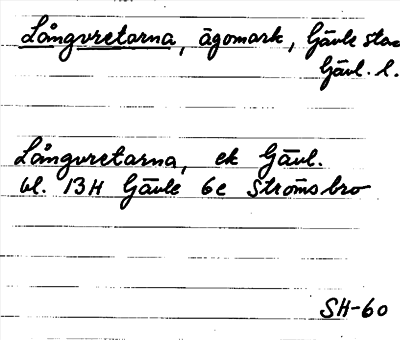 Långvretarna, ägomark, Gävle stad
Gävl. l.
Långvretarna, ek Gävl.
bl. 13H Gävle 6c Strömsbro
SH-60